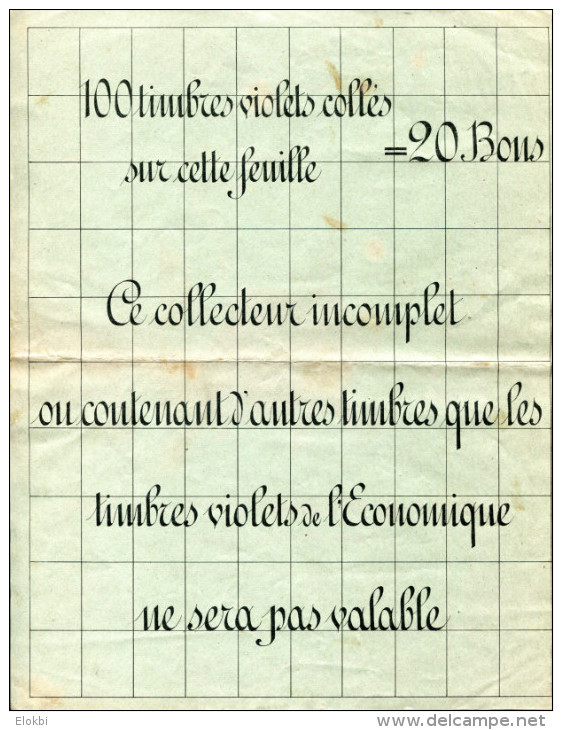 100 timbres violets collés
sur cette feuille
= 20 Bons
Ce collecteur incomplet
ou contenant d'autres timbres que les
timbres violets de l'Economique
ne sera pas valable
Elokbi
www.delcampe.net